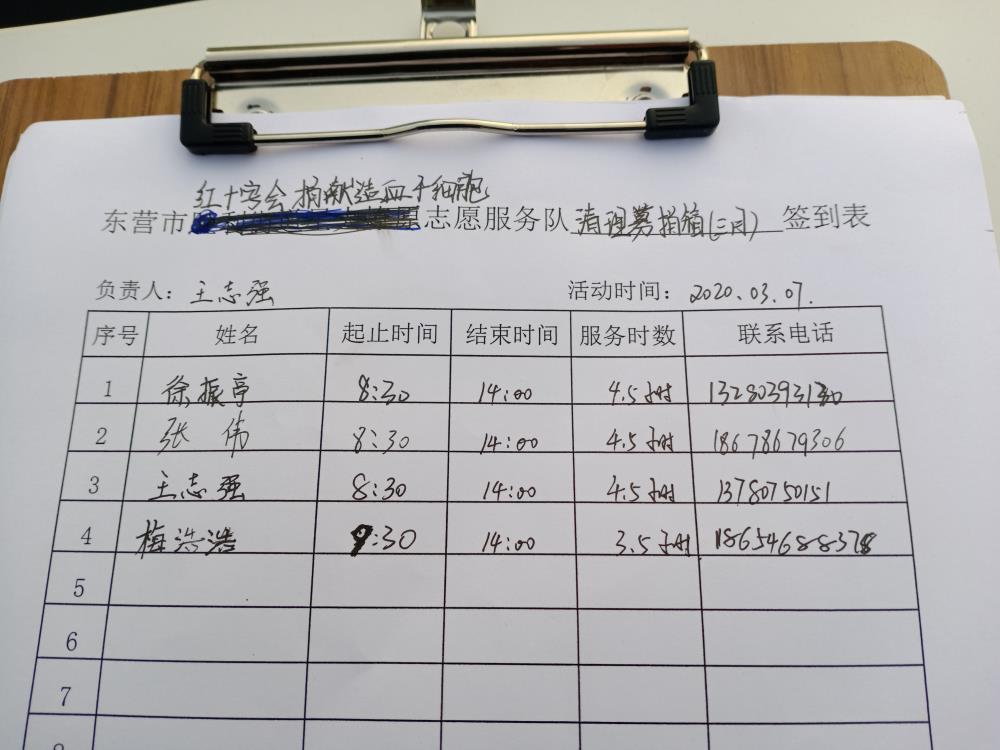 红十字会捐献造血干细胞
东营市 志愿服务队 清理募捐箱(三月) 签到表
负责人：王志强 活动时间：2020.03.07.
序号 姓名 起止时间 结束时间 服务时数 联系电话
1 徐振亭 8:30 14:00 4.5小时
2 张伟 8:30 14:00 4.5小时 18678679306
3 王志强 8:30 14:00 4.5小时 13780750151
4 梅浩浩 9:30 14:00 3.5小时 18654688378
5
6
7